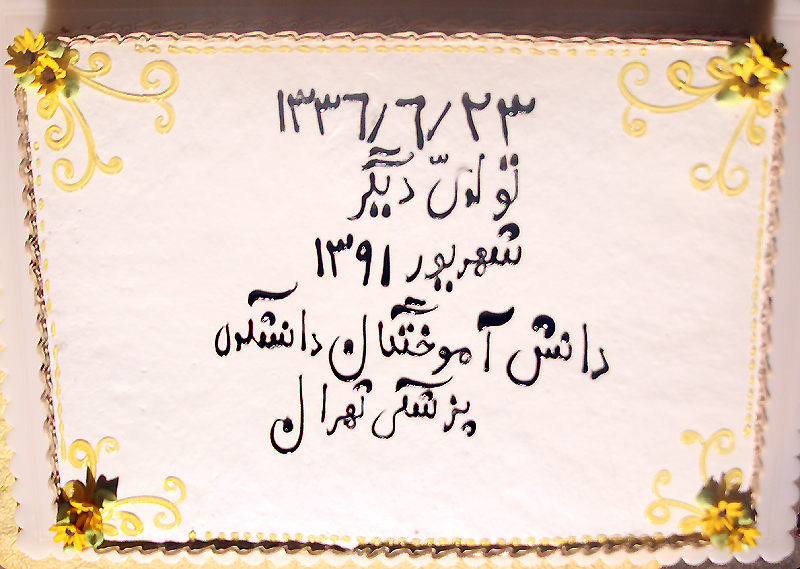 ۱۳۳۶/۶/۲۳
تولدّی دیگر
شهریور ۱۳۹۱
دانش آموختگان دانشکده
پزشکی تهران